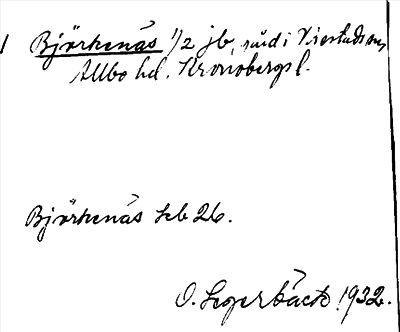 1 Björkenäs 1/2 jb, i Virestads sn,
Allbo hd. Kronobergs l.
Björkenäs Hb 26.
O. Segerbäck 1932.